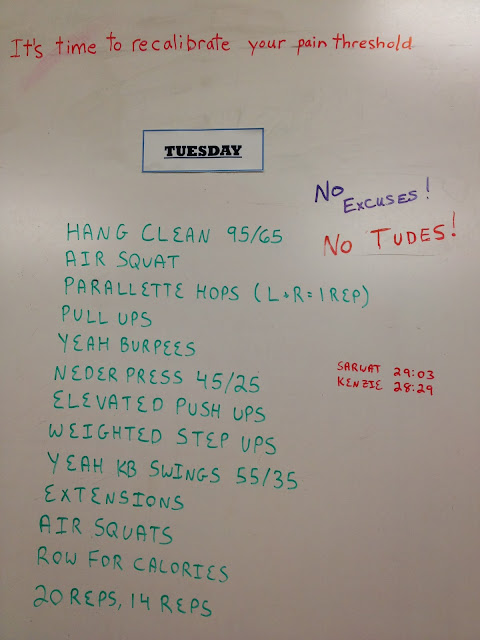 It's time to recalibrate your pain threshold
TUESDAY
No
Excuses!
No TUDES!
HANG CLEAN 95/65
AIR SQUAT
PARALLETTE HOPS (L+R=1REP)
PULL UPS
YEAH BURPEES
NEDER PRESS 45/25
ELEVATED PUSH UPS
WEIGHTED STEP UPS
YEAH KB SWINGS 55/35
EXTENSIONS
AIR SQUATS
ROW FOR CALORIES
20 REPS, 14 REPS
SARWAT 29:03
KENZIE 28:29